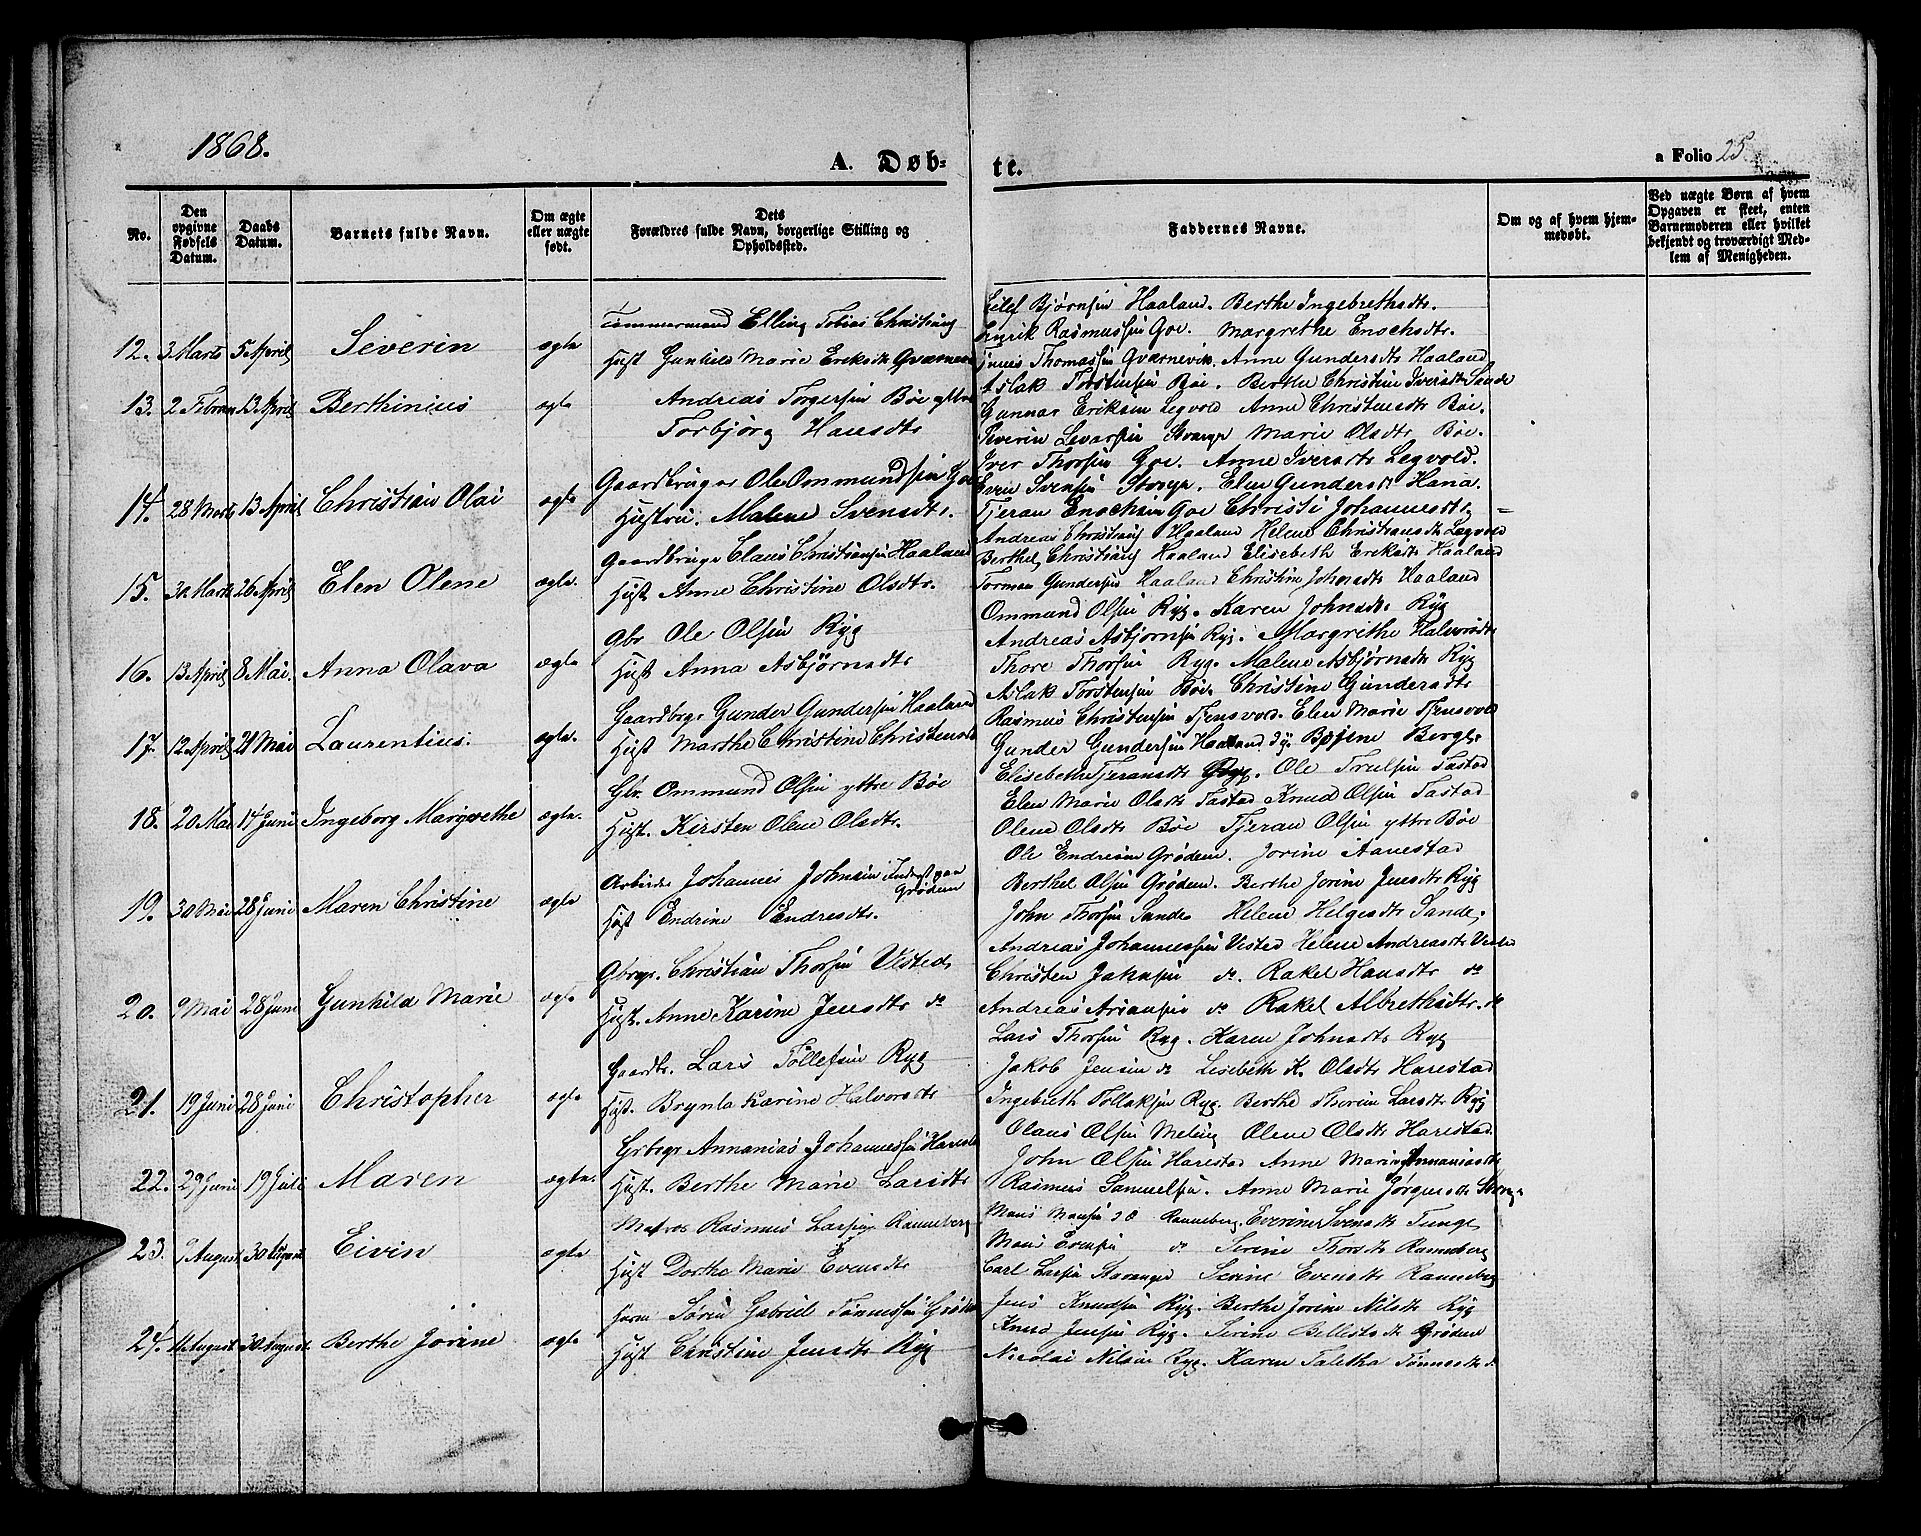 1868.
A. Døb-
te.
a Folio 25
No.
Den
opgivne
Fødsels
Datum.
Daabs
Datum.
Barnets fulde Navn.
Om ægte
eller nægte
født.
Dets
Forældres fulde Navn, borgerlige Stilling og
Opholdssted.
Faddernes Navne.
Om og af hvem hjem-
medøbt.
Ved nægte Børn af hvem
Opgaven er skeet, enten
Barnemoderen eller hvilket
bekjendt og troværdigt Med-
lem af Menigheden.
12. 3 Marts 5 April Severin ægte
Tømmermand Elling Tobias Christians
Hust Gunhild Marie Eriksdtr
Bjørnsen Haaland. Berthe Ingebrethsdtr.
Henrik Rasmussen Goe. Margrethe Enochsdtr.
Thomassen Gvarnevik. Anne Gundersdtr Haaland
13. 2 Februar 13 April Berthinius ægte
Andreas Torgersen Bøe ytre
Torbjørg Hansdtr
Aslak Torstensen Bøe. Berthe Christine Iversdtr Sande
Gunnar Eriksen Legvold Anne Christensdtr Bøe.
Severin Levarsen Marie Olsdtr Bøe.
14. 28 Marts 13 April Christian Olai ægte
Gaardbruger Ole Ommundsen Goe
Hustru. Malene Svensdtr.
Iver Thorsen Goe. Anne Iversdtr Legvold.
Even Svensen Elen Gundersdtr Hana.
Tjeran Enochsen Goe Christi Johannesdtr =
15. 30 Marts 26 April Elen Olene ægte.
Gaardbruger Claus Christiansen Haaland
Hust Anne Christine Olsdtr.
Andreas Christians Haaland Helene Christiansdtr Legvold
Berthel Christians Haaland Elisebeth Eriksdtr Haaland
Tormen Gundersen Haaland Christine Johnsdtr Haaland
16. 13 April 8 Mai. Anna Olava ægte
Gbr Ole Olsen Ryg
Hust Anna Asbjørnsdtr
Ommund Olsen Ryg. Karen Johnsdtr Ryg
Andreas Asbjørnsen Ryg. Margrethe Halvorsdtr
Thore Thorsen Ryg. Malene Asbjørnsdtr Ryg
17. 12 April 21 Mai Laurentius. ægte.
Gaardbrgr Gunder Gundersen Haaland
Hust Marthe Christine Christensdtr
Aslak Torstensen Bøe. Christine Gundersdtr
Rasmus Christensen Tjensvold. Elen Marie Tjensvold
Gunder Gundersen Haaland Berge
18. 20 Mai 14 Juni Ingeborg Margrethe ægte.
Gbr. Ommund Olsen ytre Bøe
Hust. Kirsten Olene Olsdtr.
Elisebeth Tjeransdtr Ryg. Ole Truelsen Tastad
Elen Marie Olsdtr Tastad Knud Olsen Tastad
Olene Olsdtr Bøe Tjeran Olsen ytre Bøe
19. 30 Mai 28 Juni Maren Christine ægte
Arbeider Johannes Johnsen Inderst paa
Grødem
Hust Endrine Endresdtr.
Ole Endresen Grødem. Jorine Aanestad
Berthel Olsen Grødem. Berthe Jorine Jensdtr Ryg
John Thorsen Sande Helene Helgesdtr Sande.
20. 9 Mai 28 Juni Gunhild Marie ægte
Gbrgr. Christian Thorsen Visted
Hust. Anne Karine Jensdtr do
Andreas Johannessen Visted Helene Andreasdtr Visted
Christen Jakobsen do. Rakel Hansdtr do
Andreas do Rakel Albrethsdtr. do
21. 19 Juni 28 Juni Christopher ægte
Gaardbr. Lars Tollefsen Ryg
Hust. Brynla Karine Halvorsdtr
Lars Thorsen Ryg. Karen Johnsdtr Ryg
Jakob Jensen do Lisebeth K. Olsdtr Harestad
Ingebreth Tollaksen Ryg. Berthe Thorine Larsdtr Ryg
22. 29 Juni 19 Juli Maren ægte.
Grbrgr Annanias Johannessen Harestad
Hust. Berthe Marie Larsdtr
Olaus Olsen Meling Olene Olsdtr Harestad.
John Olsen Harestad Anne Marie Annaniasdtr
Rasmus Samuelsen. Anne Marie Jørgensdtr
23. 9 August 30 August Eivin ægte
Matros Rasmus Larsen Ranneberg
Hust Dorthe Marie Evensdtr
Mons Monsen Ranneberg. Everine Svensdtr Tunge
Mons Evensen do Serine Thorsdtr Ranneberg
Carl Larsen Stavanger Serine Evensdtr Ranneberg
24. 11 August 30 August Berthe Jorine ægte
Søren Gabriel Tønnessen Grødem
Hust Christine Jensdtr Ryg
Jens Knudsen Ryg. Berthe Jorine Nilsdtr Ryg
Knud Jensen Ryg. Serine Grødem
Nicolai Nilsen Ryg. Karen Taletha Tønnesdtr